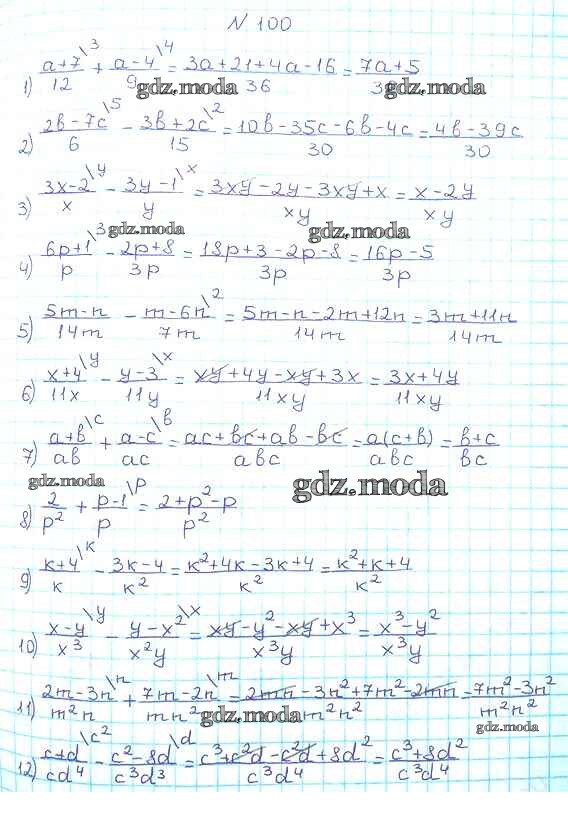 N 100
1) (a+7)/12 \3 + (a-4)/9 \4 = (3a+21+4a-16)/36 = (7a+5)/3
gdz.moda
2) (2b-7c)/6 \5 - (3b+2c)/15 \2 = (10b-35c-6b-4c)/30 = (4b-39c)/30
3) (3x-2)/x \y - (3y-1)/y \x = (3xy-2y-3xy+x)/xy = (x-2y)/xy
gdz.moda gdz.moda
4) (6p+1)/p \3 - (2p+8)/3p = (18p+3-2p-8)/3p = (16p-5)/3p
5) (5m-n)/14m - (m-6n)/7m \2 = (5m-n-2m+12n)/14m = (3m+11n)/14m
6) (x+4)/11x \y - (y-3)/11y \x = (xy+4y-xy+3x)/11xy = (3x+4y)/11xy
7) (a+b)/ab \c + (a-c)/ac \b = (ac+bc+ab-bc)/abc = a(c+b)/abc = (b+c)/bc
gdz.moda gdz.moda
8) 2/p² + (p-1)/p \p = (2+p²-p)/p²
9) (k+4)/k \k - (3k-4)/k² = (k²+4k-3k+4)/k² = (k²+k+4)/k²
10) (x-y)/x³ \y - (y-x²)/x²y \x = (xy-y²-xy+x³)/x³y = (x³-y²)/x³y
11) (2m-3n)/m²n \n + (7m-2n)/mn² \m = (2mn-3n²+7m²-2mn)/m²n² = (7m²-3n²)/m²n²
gdz.moda
gdz.moda
12) (c+d)/cd⁴ \c² - (c²-8d)/c³d³ \d = (c³+c²d-c²d+8d²)/c³d⁴ = (c³+8d²)/c³d⁴